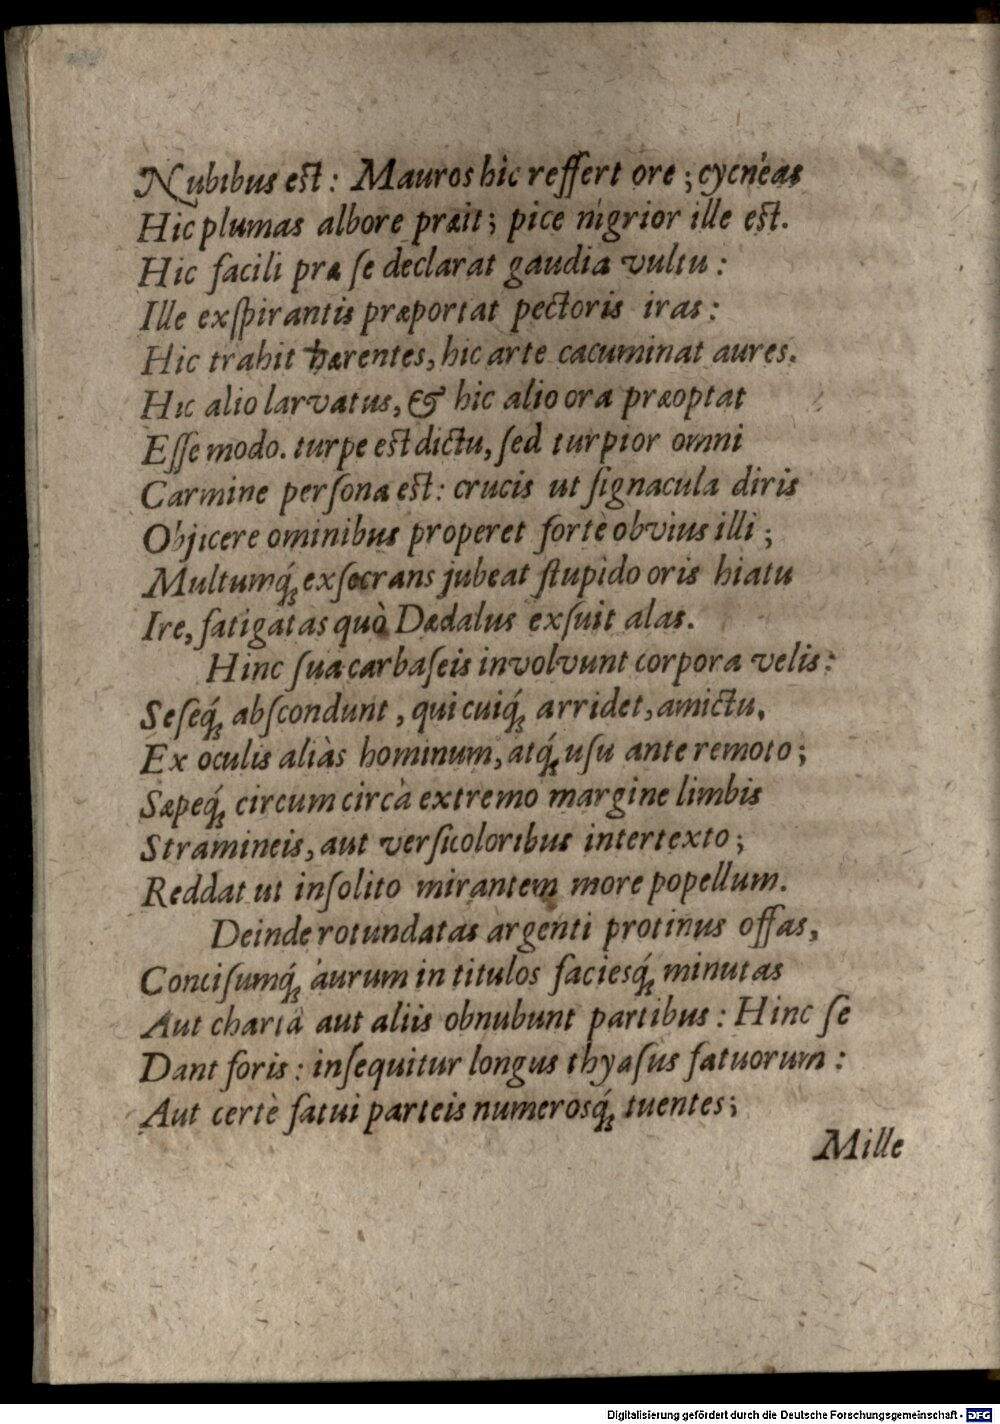 Nubibus eſt: Mauros hic reffert ore; cycnéas
Hic plumas albore præit; pice nigrior ille eſt.
Hic facili præ ſe declarat gaudia vultu:
Ille exſpirantis præportat pectoris iras:
Hic trahit hærentes, hic arte cacuminat aures.
Hic alio larvatus, & hic alio ora præoptat
Eſſe modo. turpe eſt dictu, ſed turpior omni
Carmine perſona eſt: crucis ut ſignacula diris
Objicere ominibus properet fortè obvius illi;
Multumq́ꝫ exſecrans jubeat ſtupido oris hiatu
Ire, fatigatas quò Dædalus exſuit alas.
Hinc ſua carbaſeis involvunt corpora velis:
Seſeq́ꝫ abſcondunt, qui cuiq́ꝫ arridet, amictu,
Ex oculis aliàs hominum, atq́ꝫ uſu ante remoto;
Sæpeq́ꝫ circum circà extremo margine limbis
Stramineis, aut verſicoloribus intertexto;
Reddat ut inſolito mirantem more popellum.
Deinde rotundatas argenti protinus offas,
Conciſumq́ꝫ aurum in titulos faciesq́ꝫ minutas
Aut chartâ aut aliis obnubunt partibus: Hinc ſe
Dant foris: inſequitur longus thyaſus fatuorum:
Aut certè fatui parteis numerosq́ꝫ tuentes;
Mille
Digitalisierung gefördert durch die Deutsche Forschungsgemeinschaft - DFG